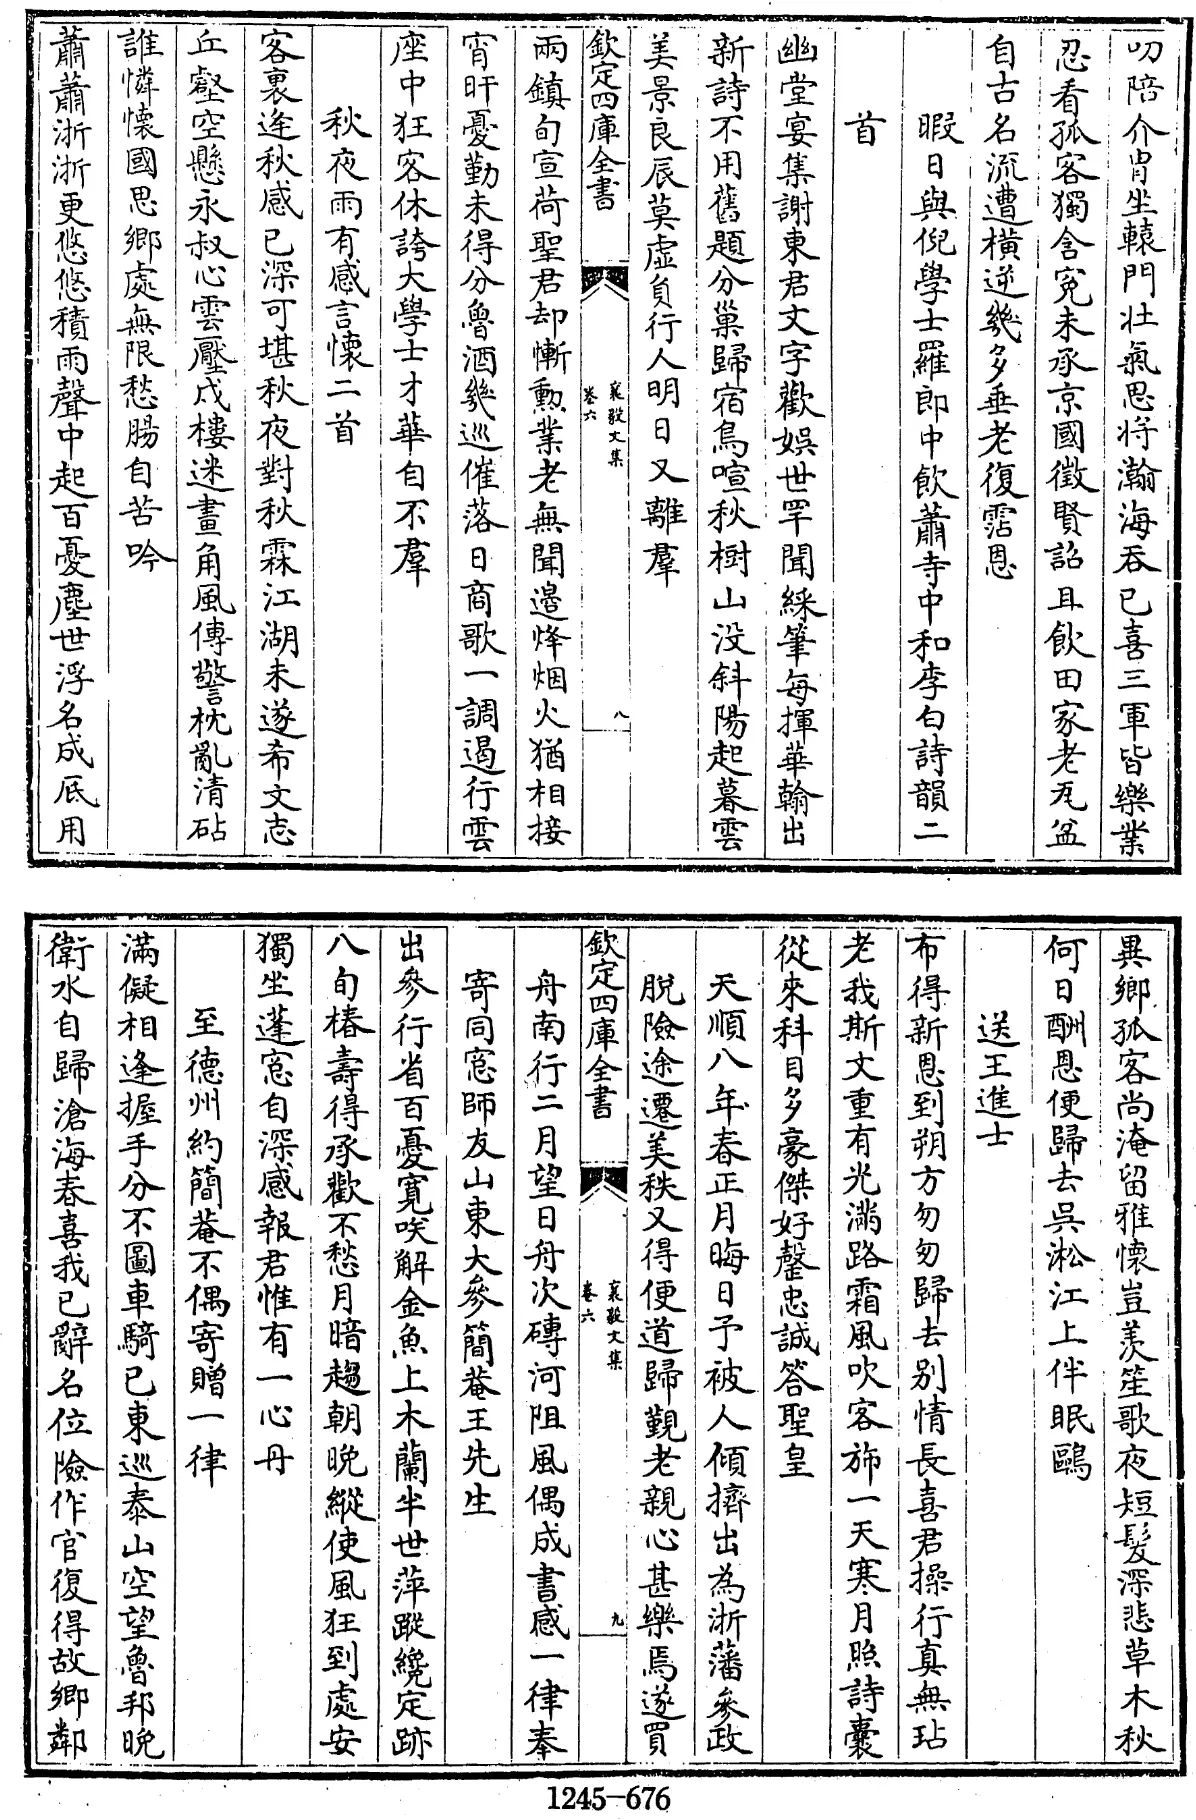 叨陪介胄坐轅門壯氣思將瀚海吞已喜三軍皆樂業
忍看孤客獨含寃未承京國徵賢詔且飲田家老瓦盆
自古名流遭橫逆幾多垂老復霑恩
暇日與倪學士羅郎中飲蕭寺中和李白詩韻二
首
幽堂宴集謝東君文字歡娯世罕聞綵筆每揮華翰出
新詩不用舊題分巢歸宿鳥喧秋樹山没斜陽起暮雲
美景良辰莫虚負行人明日又離羣
欽定四庫全書
襄毅文集
卷六
八
兩鎮旬宣荷聖君却慚勲業老無聞邉烽烟火猶相接
宵旰憂勤未得分魯酒幾巡催落日商歌一調遏行雲
座中狂客休誇大學士才華自不羣
秋夜雨有感言懷二首
客裏逢秋感已深可堪秋夜對秋霖江湖未遂希文志
丘壑空懸永叔心雲壓戍樓迷畫角風傳警枕亂清砧
誰憐懷國思鄉處無限愁腸自苦吟
蕭蕭浙浙更悠悠積雨聲中起百憂塵世浮名成底用
異鄉孤客尚淹留雅懷豈羨笙歌夜短髮深悲草木秋
何日酬恩便歸去吳淞江上伴眠鷗
送王進士
布得新恩到朔方匆匆歸去别情長喜君操行真無玷
老我斯文重有光滿路霜風吹客斾一天寒月照詩囊
從來科目多豪傑好罄忠誠答聖皇
天順八年春正月晦日予被人傾擠出為浙藩參政
脱險途遷美秩又得便道歸覲老親心甚樂焉遂買
欽定四庫全書
襄毅文集
卷六
九
舟南行二月望日舟次磚河阻風偶成書感一律奉
寄同窓師友山東大參簡菴王先生
出參行省百憂寛咲解金魚上木蘭半世萍蹤纔定跡
八旬椿壽得承歡不愁月暗趨朝晩縱使風狂到處安
獨坐蓬窓自深感報君惟有一心丹
至德州約簡菴不偶寄贈一律
滿儗相逢握手分不圖車騎已東巡泰山空望魯邦晩
衛水自歸滄海春喜我已辭名位險作官復得故鄉鄰
1245-676